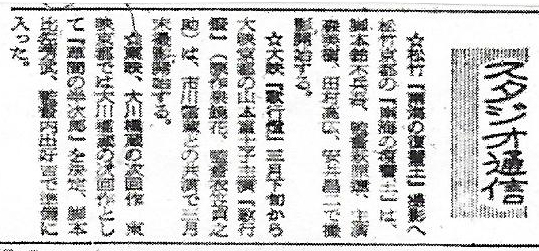 スタジオ通信
☆松竹『南海の復讐王』撮影へ
松竹京都の『南海の復讐王』は、
脚本鈴木兵吾、監督萩原遼、主演
田村高広、
影開始する。
☆大映『歌行燈』三月下旬から
大映京都の山本富士子主演『歌行
燈』(原作泉鏡花、監督衣笠貞之
助)は、市川雷蔵との共演で三月
末撮影開始する。
☆東映、大川橋蔵の次回作 東
映京都では大川橋蔵の次回作とし
て『草間の半次郎』を決定、脚本
比佐芳武、監督内出好吉で準備に
入った。